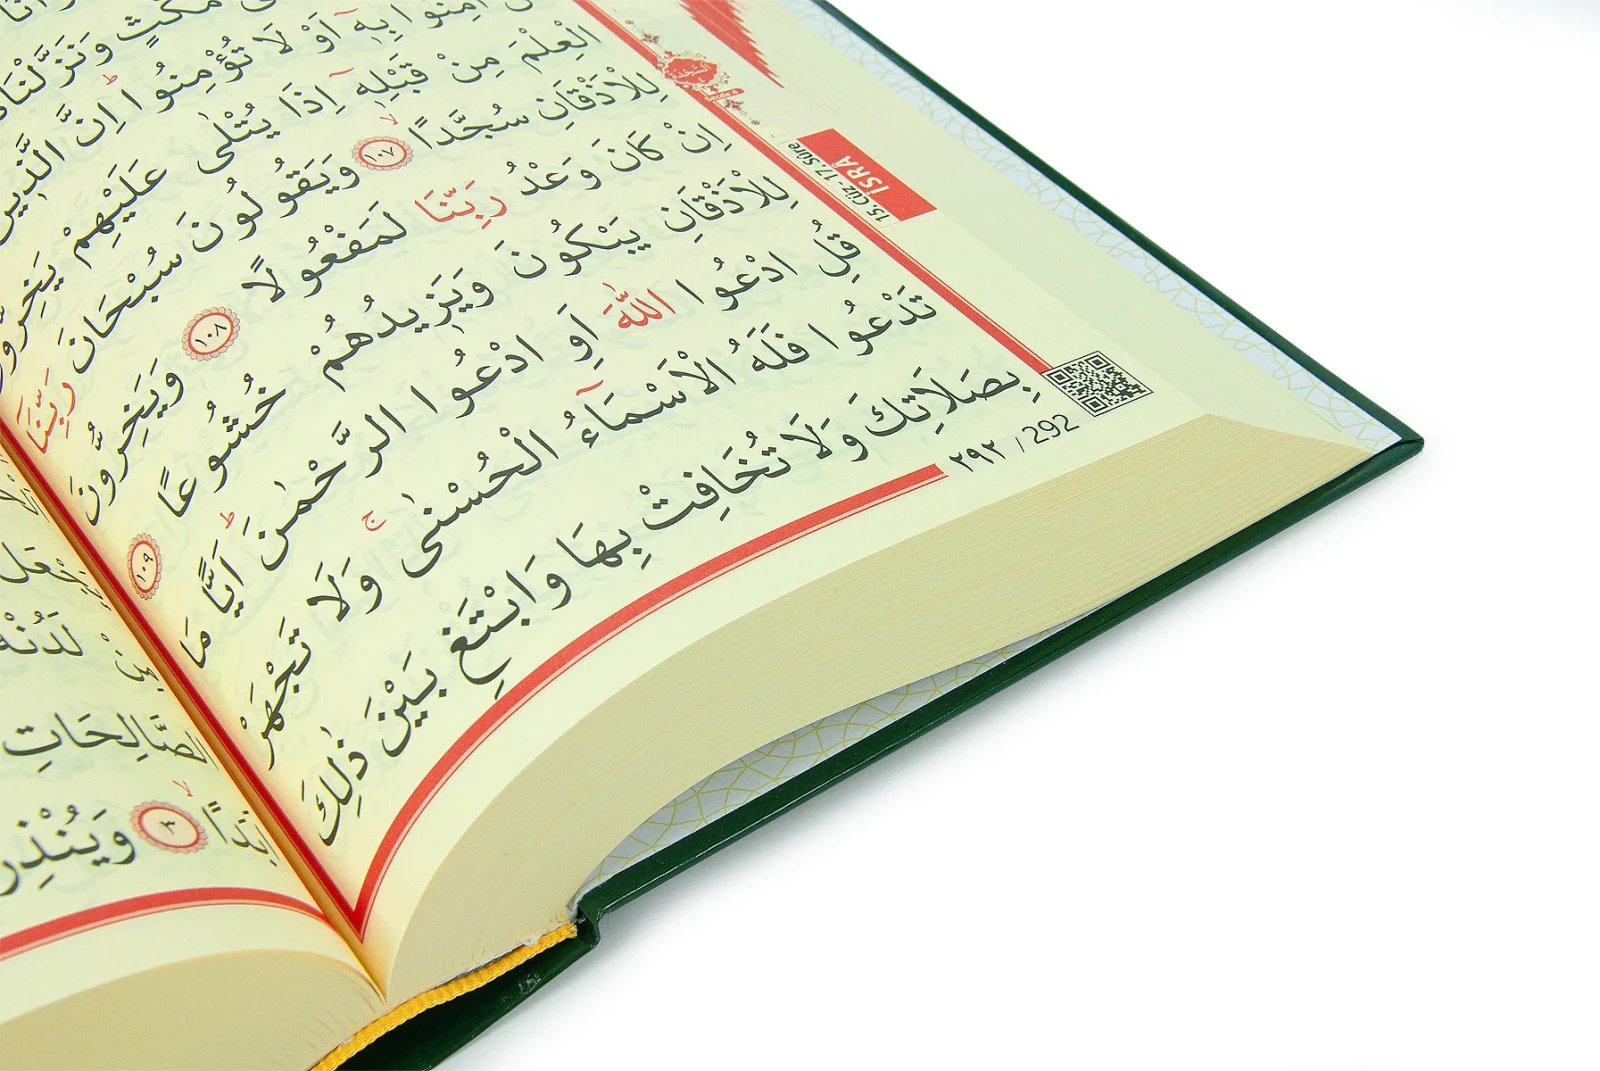 مُكْثٍ وَنَزَّلْنَاهُ
اٰمِنُوا بِهٖٓ اَوْ لَا تُؤْمِنُواۜ اِنَّ الَّذٖينَ
الْعِلْمَ مِنْ قَبْلِهٖٓ اِذَا يُتْلٰى عَلَيْهِمْ يَخِرُّونَ
لِلْاَذْقَانِ سُجَّدًاۙ ١٠٧ وَيَقُولُونَ سُبْحَانَ رَبِّنَٓا
اِنْ كَانَ وَعْدُ رَبِّنَا لَمَفْعُولًا ١٠٨ وَيَخِرُّونَ
لِلْاَذْقَانِ يَبْكُونَ وَيَزٖيدُهُمْ خُشُوعًا ١٠٩
قُلِ ادْعُوا اللّٰهَ اَوِ ادْعُوا الرَّحْمٰنَۜ اَيًّا مَا
تَدْعُوا فَلَهُ الْاَسْمَٓاءُ الْحُسْنٰىۚ وَلَا تَجْهَرْ
بِصَلَاتِكَ وَلَا تُخَافِتْ بِهَا وَابْتَغِ بَيْنَ ذٰلِكَ
السجدة
15. Cüz - 17. Sûre
İSRÂ
٢٩٢ / 292
مِنْ لَدُنْهُ
الصَّالِحَاتِ
اَبَدًاۙ ٣ وَيُنْذِرَ